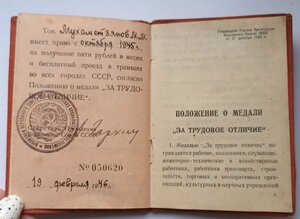 Тов. Мухаметзянов М.М.
имеет право с октября 1946 г.
на получение пяти рублей в месяц
и бесплатный проезд в трамвае
во всех городах СССР, согласно
Положению о медали „ЗА ТРУДО-
ВОЕ ОТЛИЧИЕ“.
№ 050620
19 февраля 1946 г.
Утверждено Указом Президиума
Верховного Совета СССР
от 27 декабря 1938 г.
ПОЛОЖЕНИЕ О МЕДАЛИ
„ЗА ТРУДОВОЕ ОТЛИЧИЕ“
1. Медалью „За трудовое отличие“ на-
граждаются рабочие, колхозники, служащие,
инженерно-технические и хозяйственные
работники, работники транспорта, строи-
тельств, торговых и кооперативных орга-
низаций, культурных и научных учреждений